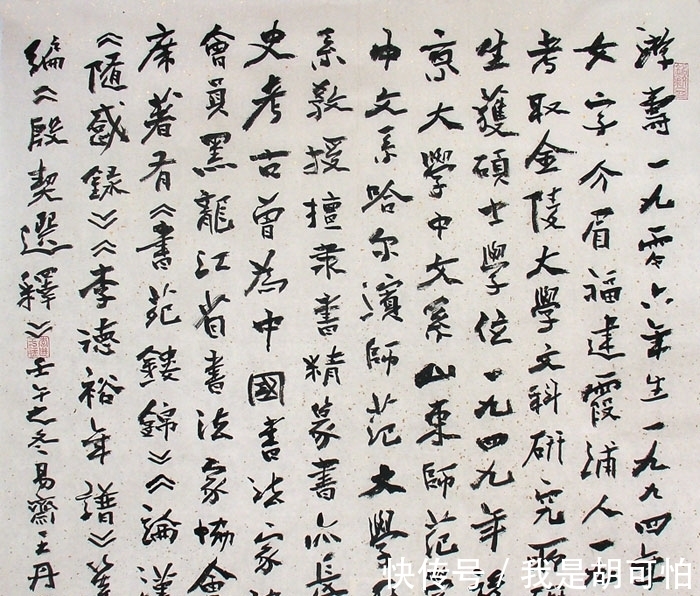 游壽一九零六年生一九九四年
女字介眉福建霞浦人一
考取金陵大學文科研究所
生獲碩士學位一九四九年後
京大學中文系山東師范
中文系哈尔濱師范大學
系教授擅隶書精篆書亦長
史考古曾為中國書法家
會員黑龍江省書法家協會
席著有《書苑鏤錦》《論漢
《隨感録》《李德裕年譜》
編《殷契選釋》壬午之冬易齋王丹
快传号 / 我是胡可怕